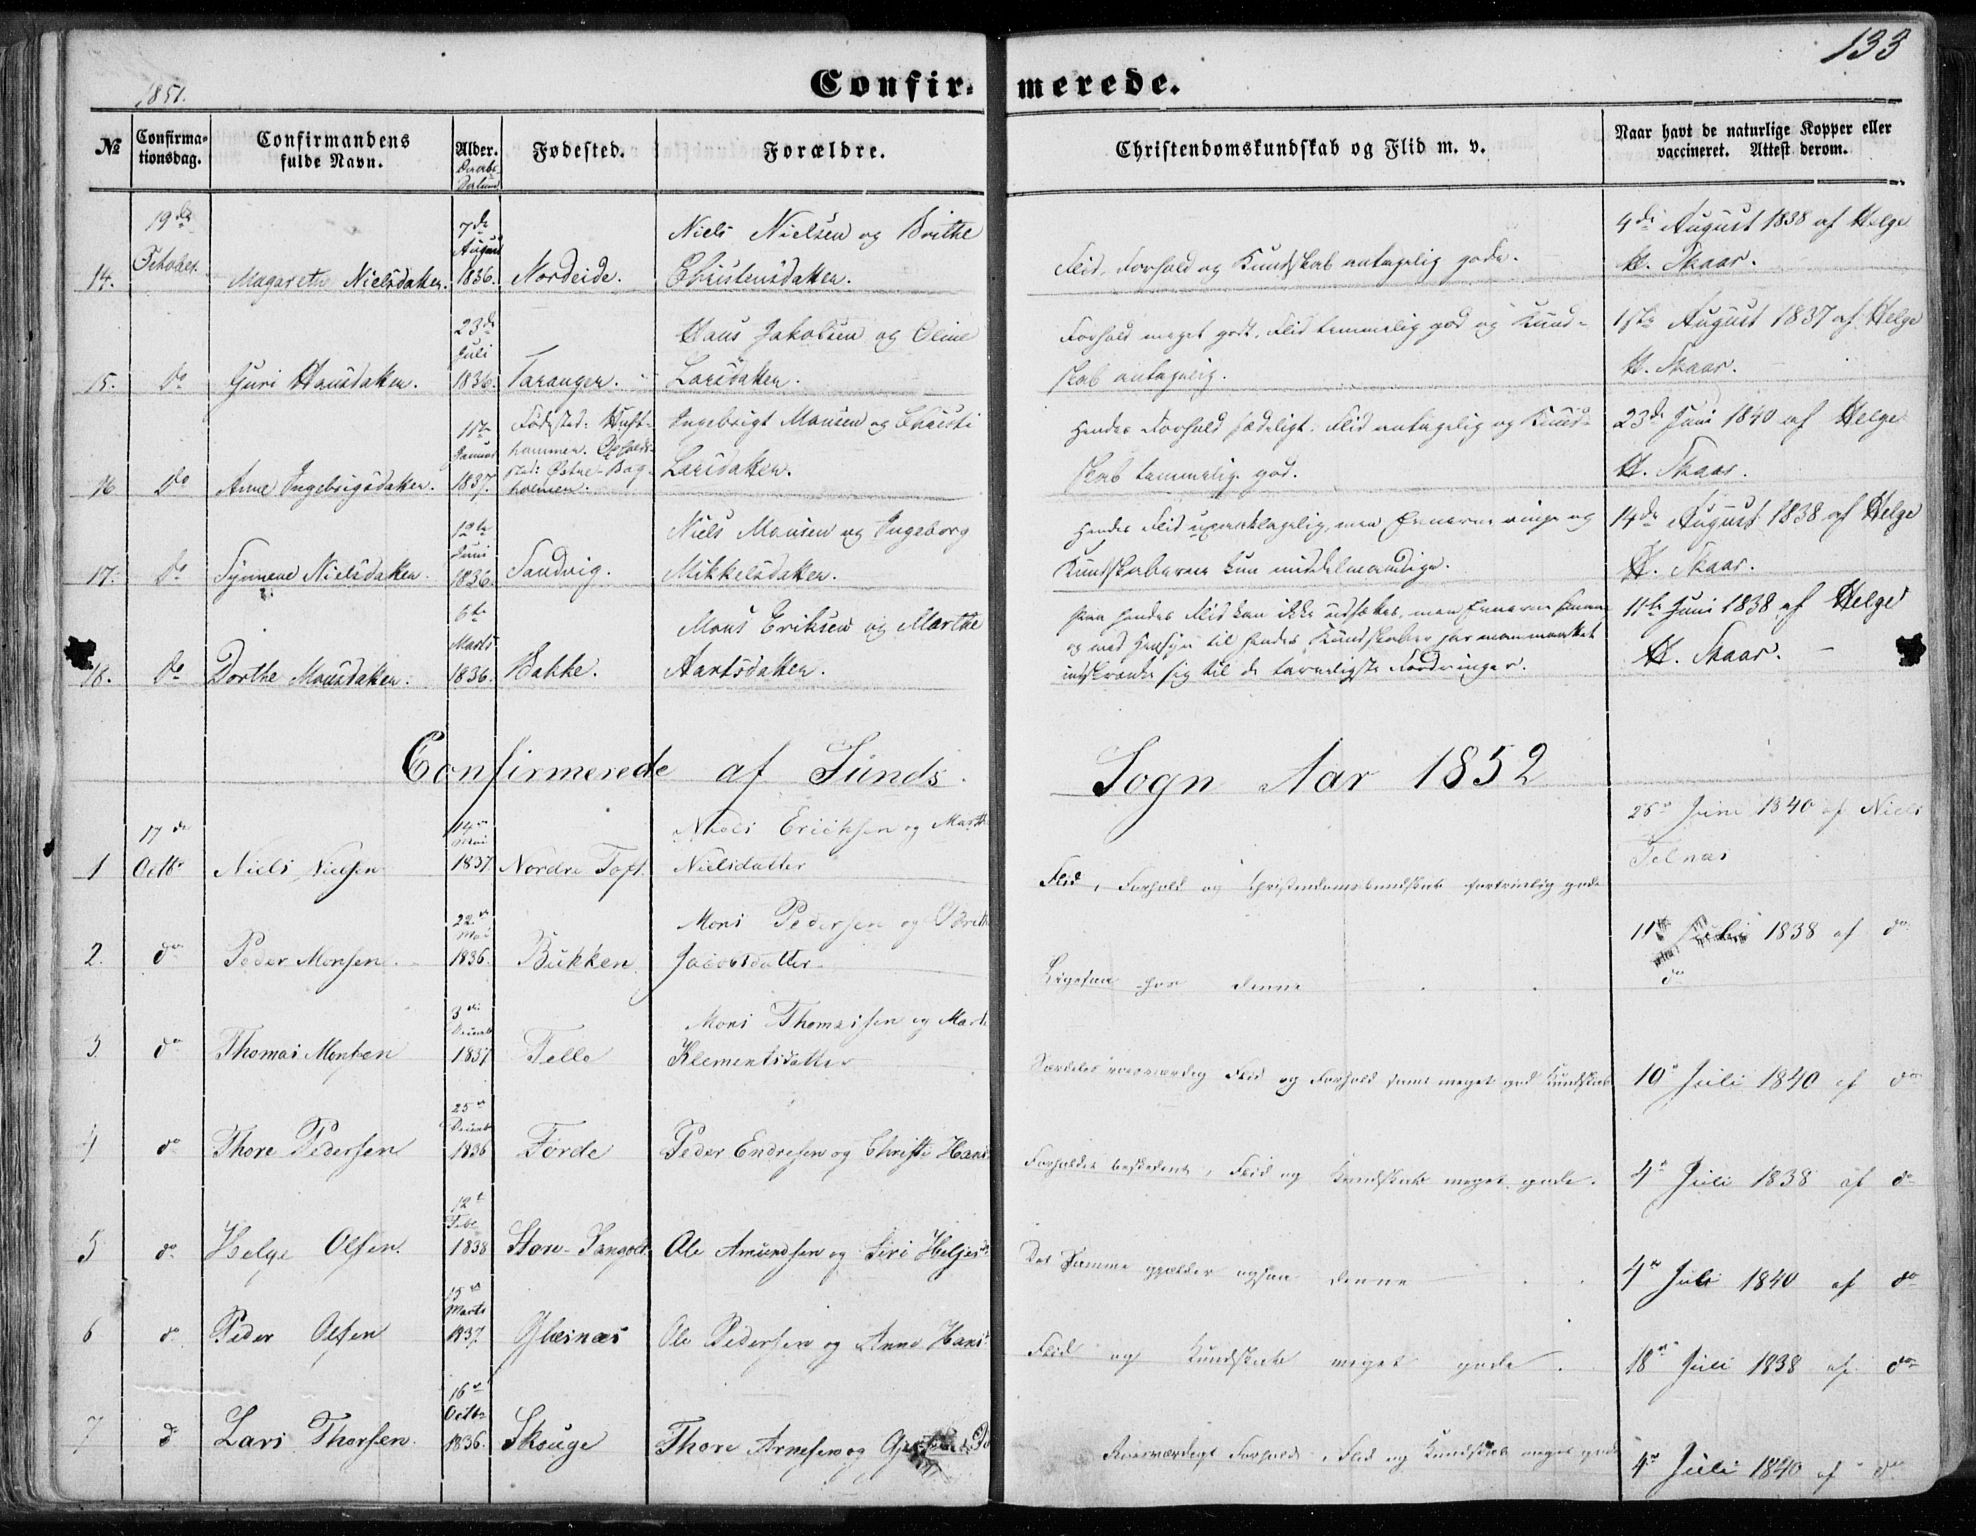 133
1851.
Confir- merede.
No
Confirma-
tionsdag.
Confirmandens
fulde Navn.
Alder.
Fødested.
Forældre.
Christendomskundskab og Flid m. v.
Naar havt de naturlige Kopper eller
vaccineret. Attest derom.
19de
October
14. Magarethe Nielsdatter. 7de August 1836. Nordeide.
Niels Nielsen og Brithe
Christensdatter.
Flid, Forhold og Kundskab antagelig gode.
9de August 1838 af Helge
H. Skaar.
15. Do Guri Hansdatter. 23de Juli 1836. Taranger.
Hans Jakobsen og Oline
Larsdatter.
Forhold meget godt, Flid temmelig god og Kund-
skab antagelig.
August 1837 af Helge
H. Skaar.
16 Do Anne Ingebrigsdatter. 11te Januar 1837.
Fødested: Huft-
hammer. Opholds-
sted: Østre-Bog-
holmen.
Ingebrigt Monsen og Christi
Larsdatter.
Hendes Forhold sædeligt. Flid antagelig og Kund-
skab temmelig god.
23de Juni 1840 af Helge
H. Skaar.
17. Do Synneve Nielsdatter. 12te Juni 1836. Sandvig.
Niels Monsen og Ingeborg
Mikkelsdatter.
Hendes Flid upaaklagelig, men Evnerne ringe og
Kundskaberne kun middelmaadige.
14de August 1838 af Helge
H. Skaar.
18. Do Dorthe Monsdatter. 6te Marts 1836. Bakke.
Mons Eriksen og Marthe
Aartsdatter.
paa hendes Flid kan ikke udsættes, men Evnerne
og med Hensyn til hendes Kundskaber har man maattet
indskrænke sig til de tarveligste Fordringer.
11te Juni 1838 af Helge
H. Skaar.
Confirmerede af Sunds Sogn Aar 1852
1 17de Octbr Niels Nielsen 14de Mai 1837 Nordre Toft.
Niels Erichsen og Marthe
Nielsdatter
Flid, Forhold og Christendomskundskab fortrinlig gode
26de Juni 1840 af Niels
Telnæs
2. do Peder Monsen 22de Mai 1836. Bukken
Mons Pedersen og Brithe
Jacobsdatter
Ligesaa for denne
11te 1838 af do
do
3. do Thomas Monsen 3die Decemb 1837 Felle
Mons Thomassen og Marthe
Klementsdatter
Særdeles roesværdig Flid og Forhold samt meget god Kundskab
10de Juli 1840 af do
4 do Thore Pedersen 25de Decemb 1836 Førde
Peder Endresen og Christi Hans
Forholdet beskedent, Flid og Kundskab meget gode.
4de Juli 1838 af do
5 do Helge Olsen. 12te Febr 1838 Store-Sangolt
Ole Amundsen og Siri Heljesd
Det Samme gjælder ogsaa denne
4de Juli 1840 af do
6 do Peder Olsen 15de Marts 1837. Glæsnæs
Ole Pedersen og Anne Hansd
Flid og Kundskab meget gode.
18de Juli 1838 af do
7 do Lars Thorsen. 16de Octbr 1836. Skouge
Thore Arnesen og
Roesværdigt Forhold, Flid og Kundskab meget gode
4de Juli 1840 af do